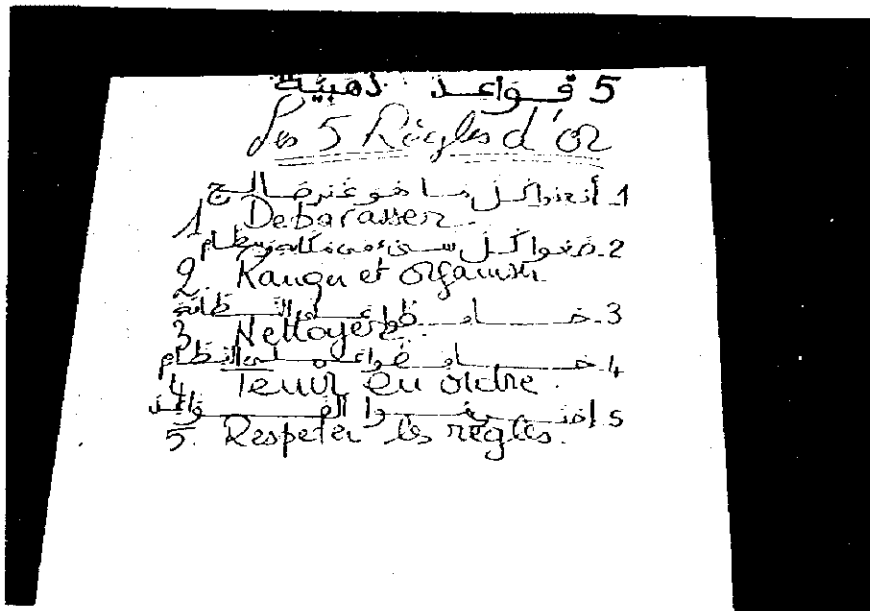 5 قواعد ذهبية
Les 5 Règles d'or
1. أبعدوا كل ما هو غير صالح
1 Debarasser
2. ضعوا كل شيء في مكانه
2. Ranger et organiser
3. حافظوا على النظافة
3 Nettoyer
4. حافظوا على النظام
4 Tenir en ordre.
5. احترموا القواعد
5. Respeter les règles.